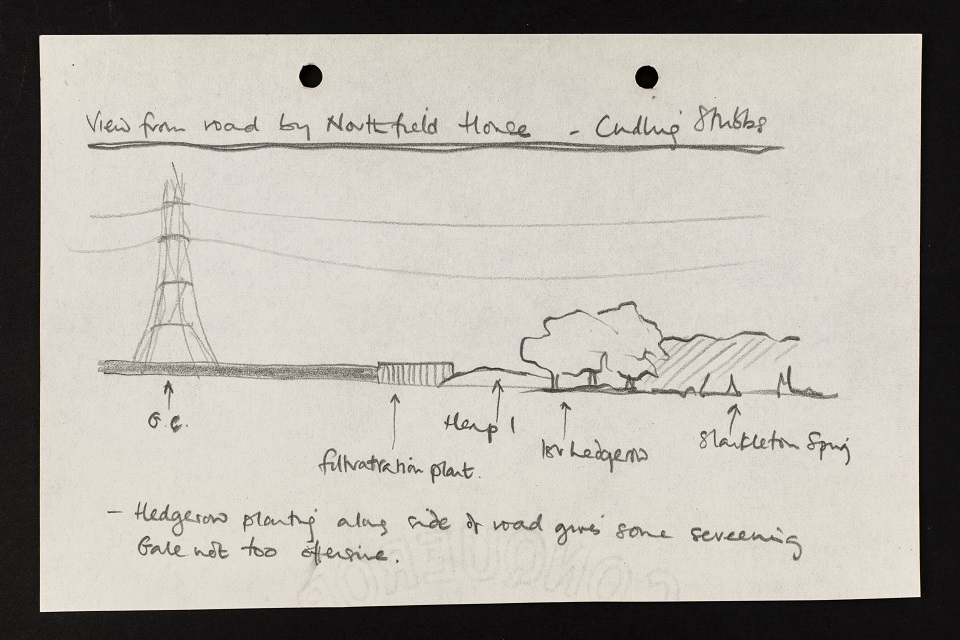 View from road by Northfield House - Cudling Stubbs
G.C.
filtratration plant.
Heap 1
1st hedgerow
Shackleton Spring
- Hedgerow planting along side of road gives some screening
Gale not too offensive.
CONQUEROR